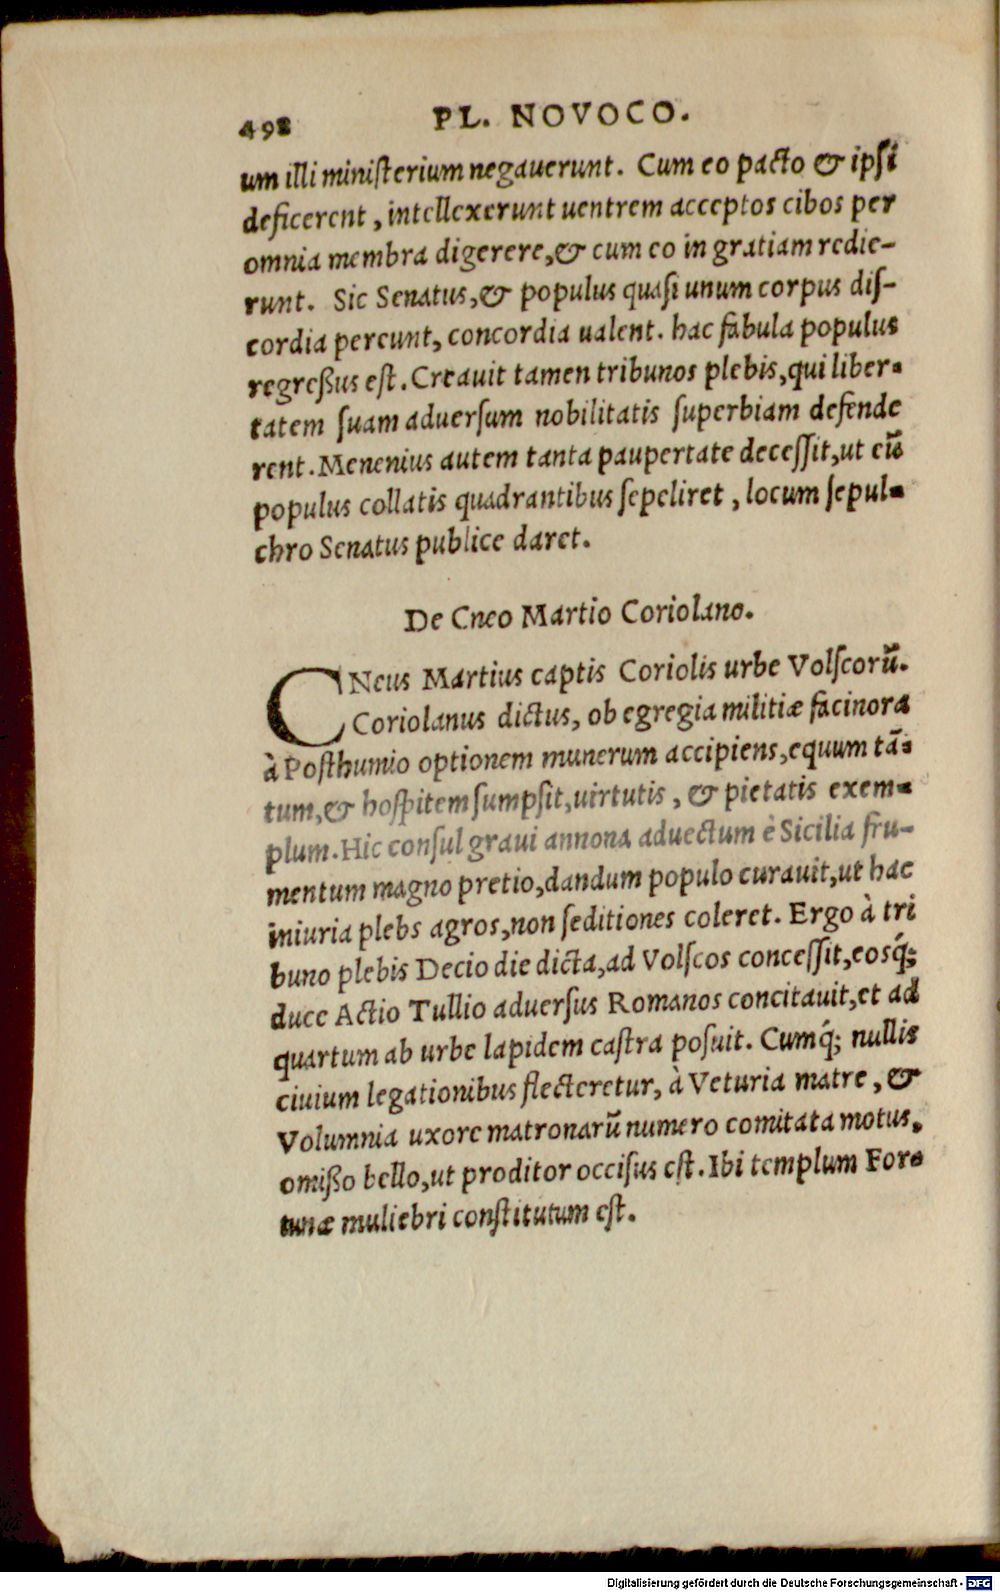 498 PL. NOVOCO.
um illi ministerium negauerunt. Cum eo pacto & ipsi
deficerent, intellexerunt uentrem acceptos cibos per
omnia membra digerere, & cum eo in gratiam redie-
runt. Sic Senatus, & populus quasi unum corpus dis-
cordia pereunt, concordia ualent. hac fabula populus
regreßus est. Creauit tamen tribunos plebis, qui liber-
tatem suam aduersum nobilitatis superbiam defende
rent. Menenius autem tanta paupertate decessit, ut eũ
populus collatis quadrantibus sepeliret, locum sepul-
chro Senatus publice daret.
De Cneo Martio Coriolano.
CNeus Martius captis Coriolis urbe Volscorũ.
Coriolanus dictus, ob egregia militiæ facinora
à Posthumio optionem munerum accipiens, equum tã-
tum, & hospitem sumpsit, uirtutis, & pietatis exem-
plum. Hic consul graui annona aduectum è Sicilia fru-
mentum magno pretio, dandum populo curauit, ut hac
iniuria plebs agros, non seditiones coleret. Ergo à tri
buno plebis Decio die dicta, ad Volscos concessit, eosq́;
duce Actio Tullio aduersus Romanos concitauit, et ad
quartum ab urbe lapidem castra posuit. Cumq́; nullis
ciuium legationibus flecteretur, à Veturia matre, &
Volumnia uxore matronarũ numero comitata motus,
omißo bello, ut proditor occisus est. Ibi templum For-
tunæ muliebri constitutum est.
Digitalisierung gefördert durch die Deutsche Forschungsgemeinschaft - DFG